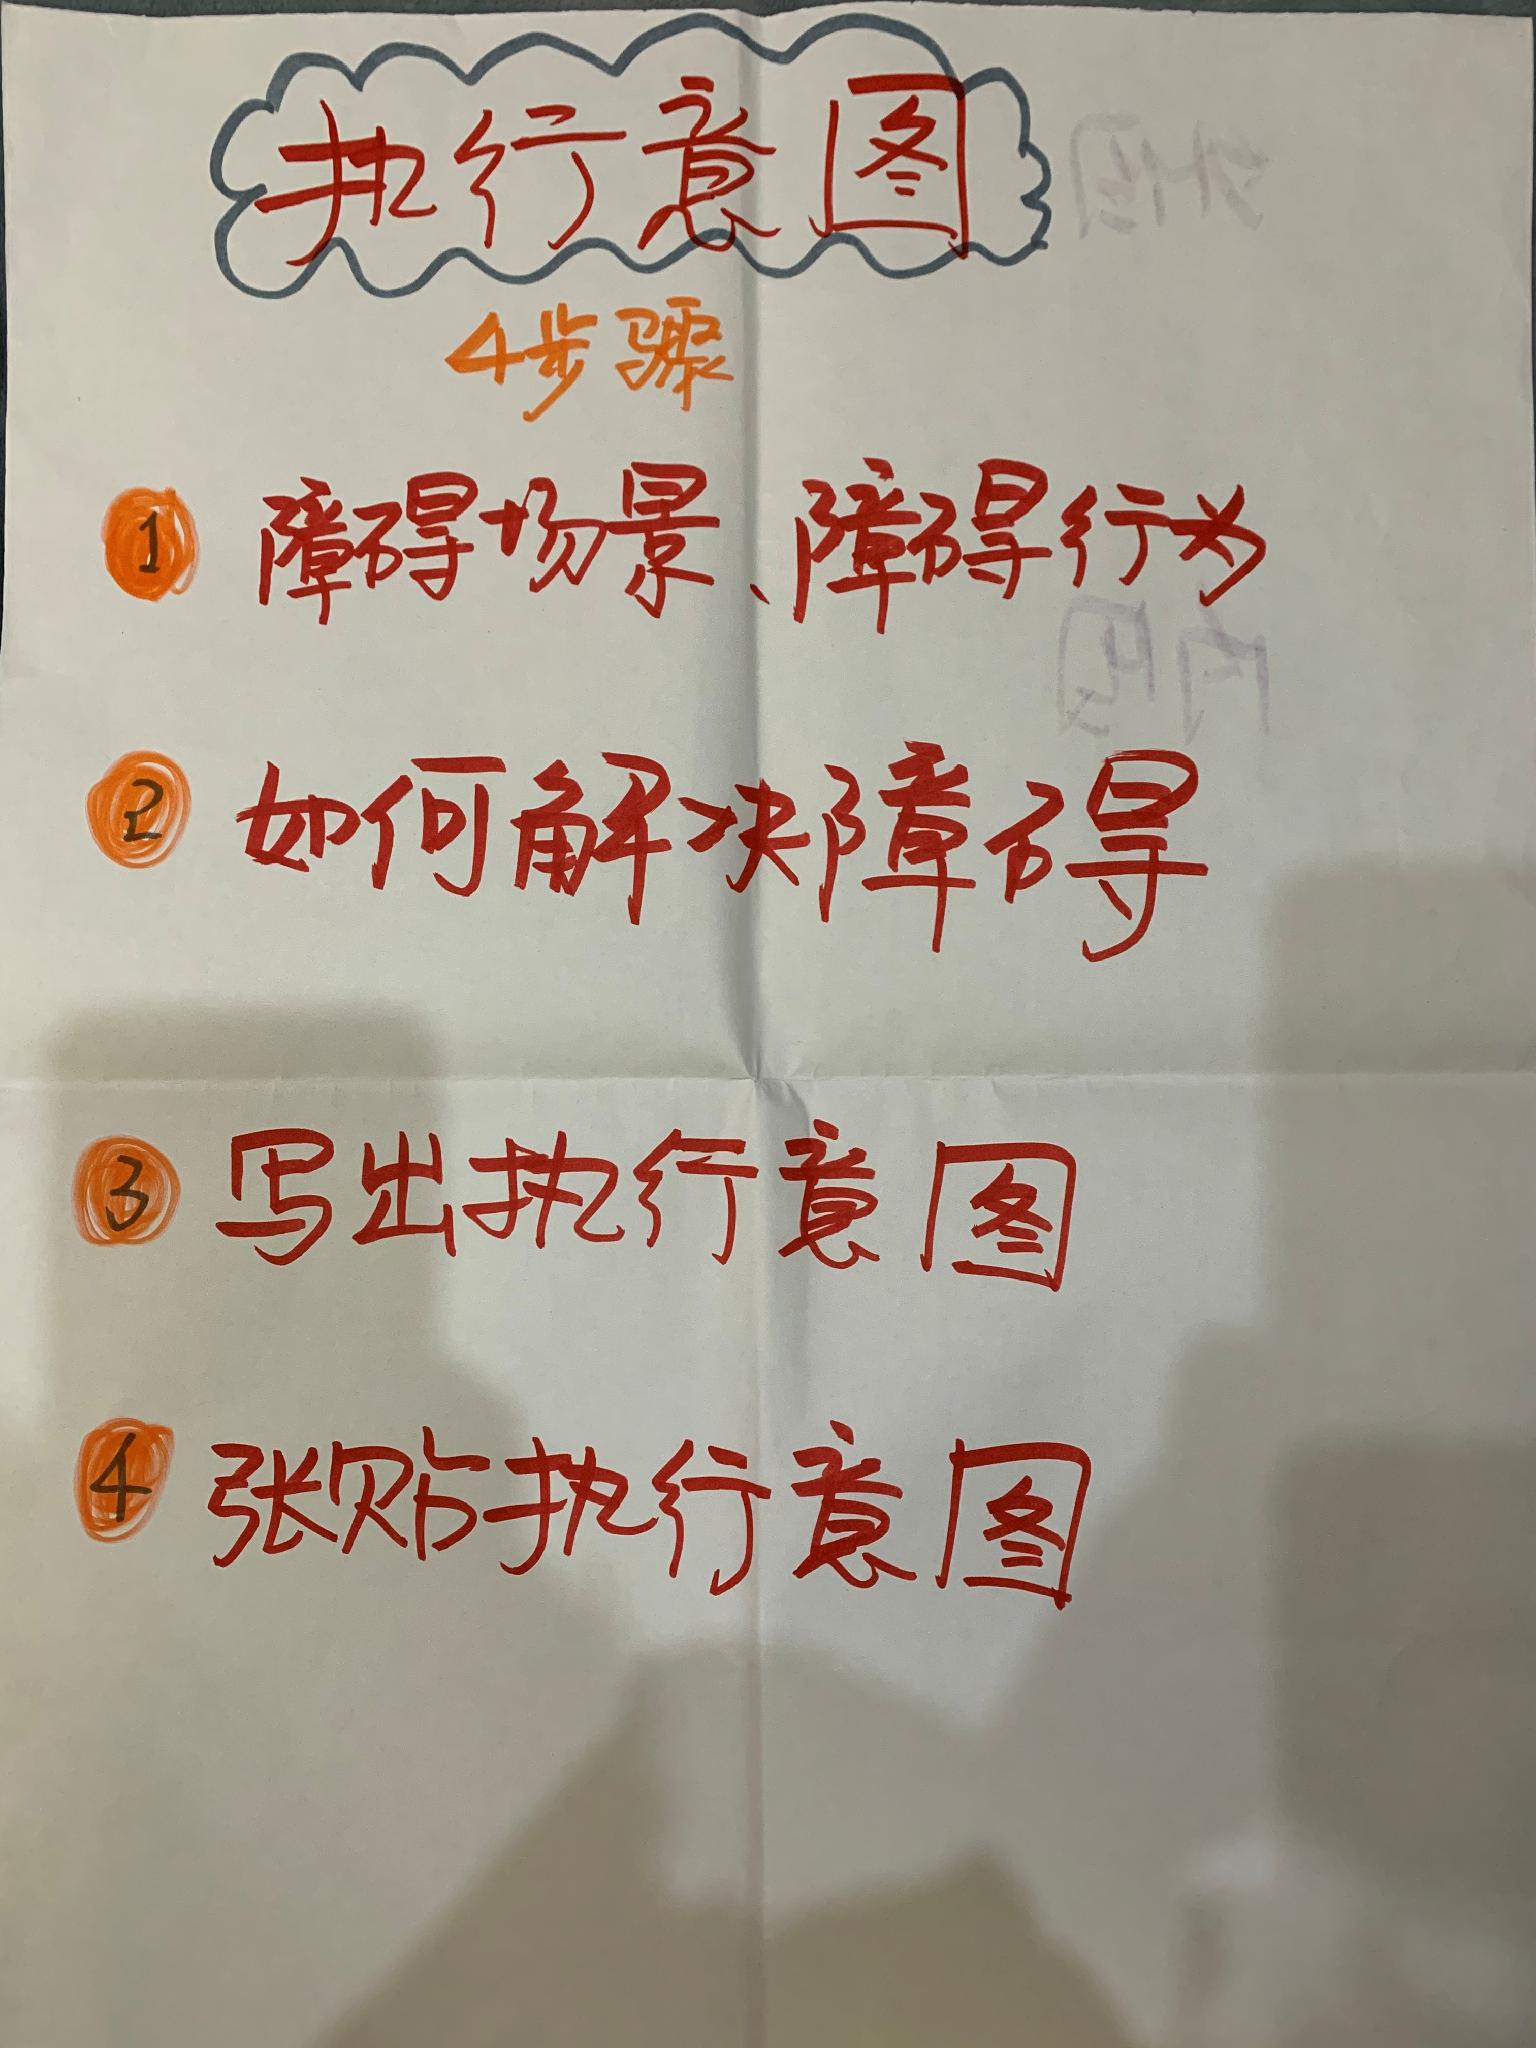 执行意图
4步骤
1 障碍场景、障碍行为
2 如何解决障碍
3 写出执行意图
4 张贴执行意图